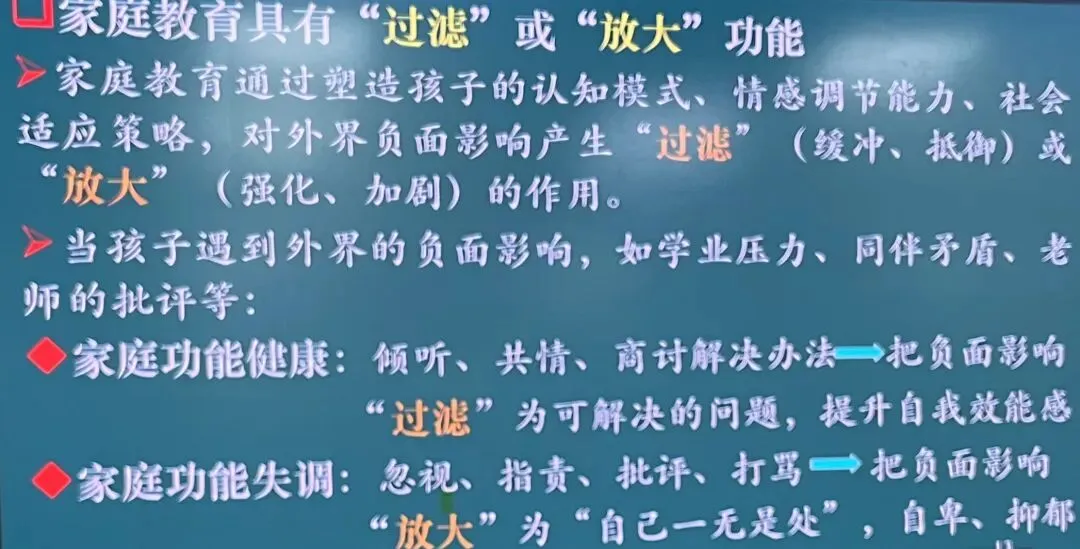 家庭教育具有“过滤”或“放大”功能
家庭教育通过塑造孩子的认知模式、情感调节能力、社会
适应策略，对外界负面影响产生“过滤”（缓冲、抵御）或
“放大”（强化、加剧）的作用。
当孩子遇到外界的负面影响，如学业压力、同伴矛盾、老
师的批评等：
家庭功能健康：倾听、共情、商讨解决办法→把负面影响
“过滤”为可解决的问题，提升自我效能感
家庭功能失调：忽视、指责、批评、打骂→把负面影响
“放大”为“自己一无是处”，自卑、抑郁